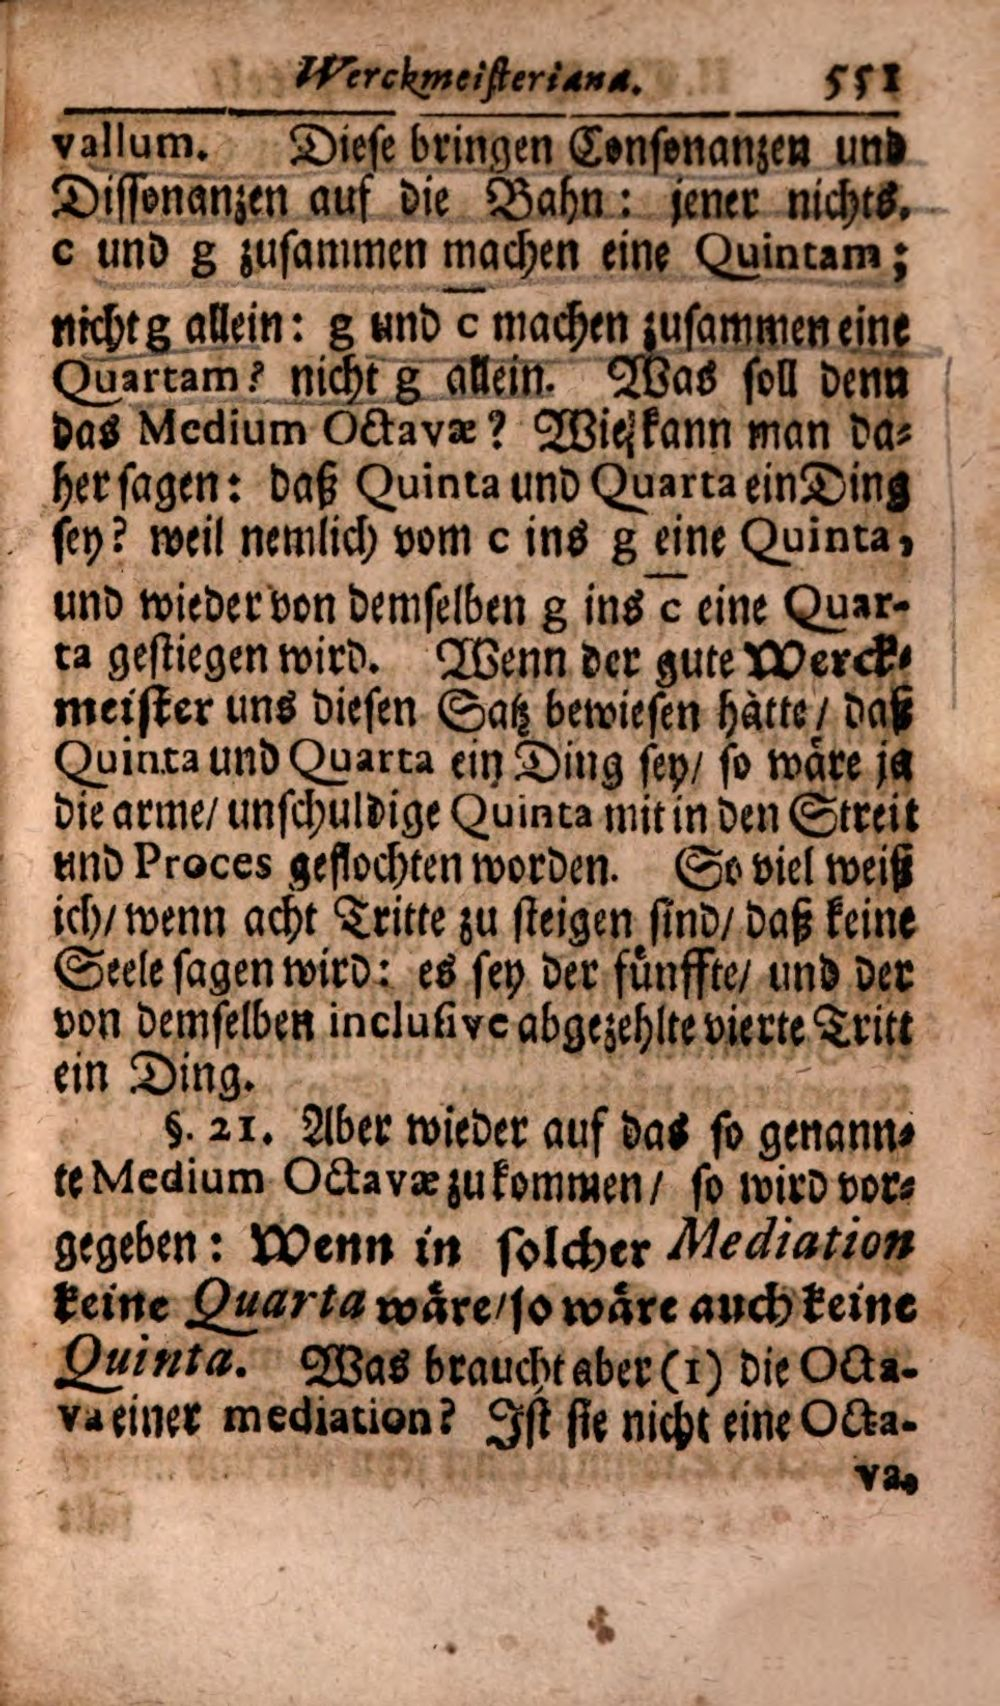 Werckmeisteriana. 551
vallum. Diese bringen Consonanzen und
Dissonanzen auf die Bahn: jener nichts.
c und g zusammen machen eine Quintam;
nicht g allein: g und c̅ machen zusammen eine
Quartam? nicht g allein. Was soll denn
das Medium Octavæ? Wie kann man da⸗
her sagen: daß Quinta und Quarta ein Ding
sey? weil nemlich vom c ins g eine Quinta,
und wieder von demselben g ins c̅ eine Quar-
ta gestiegen wird. Wenn der gute Werck⸗
meister uns diesen Satz bewiesen hätte / daß
Quinta und Quarta ein Ding sey / so wäre ja
die arme / unschuldige Quinta mit in den Streit
und Proces geflochten worden. So viel weiß
ich / wenn acht Tritte zu steigen sind / daß keine
Seele sagen wird: es sey der fünffte / und der
von demselben inclusive abgezehlte vierte Tritt
ein Ding.
§. 21. Aber wieder auf das so genann⸗
te Medium Octavæ zu kommen / so wird vor⸗
gegeben: Wenn in solcher Mediation
keine Quarta wäre / so wäre auch keine
Quinta. Was braucht aber (1) die Octa-
va einer mediation? Ist sie nicht eine Octa-
va,